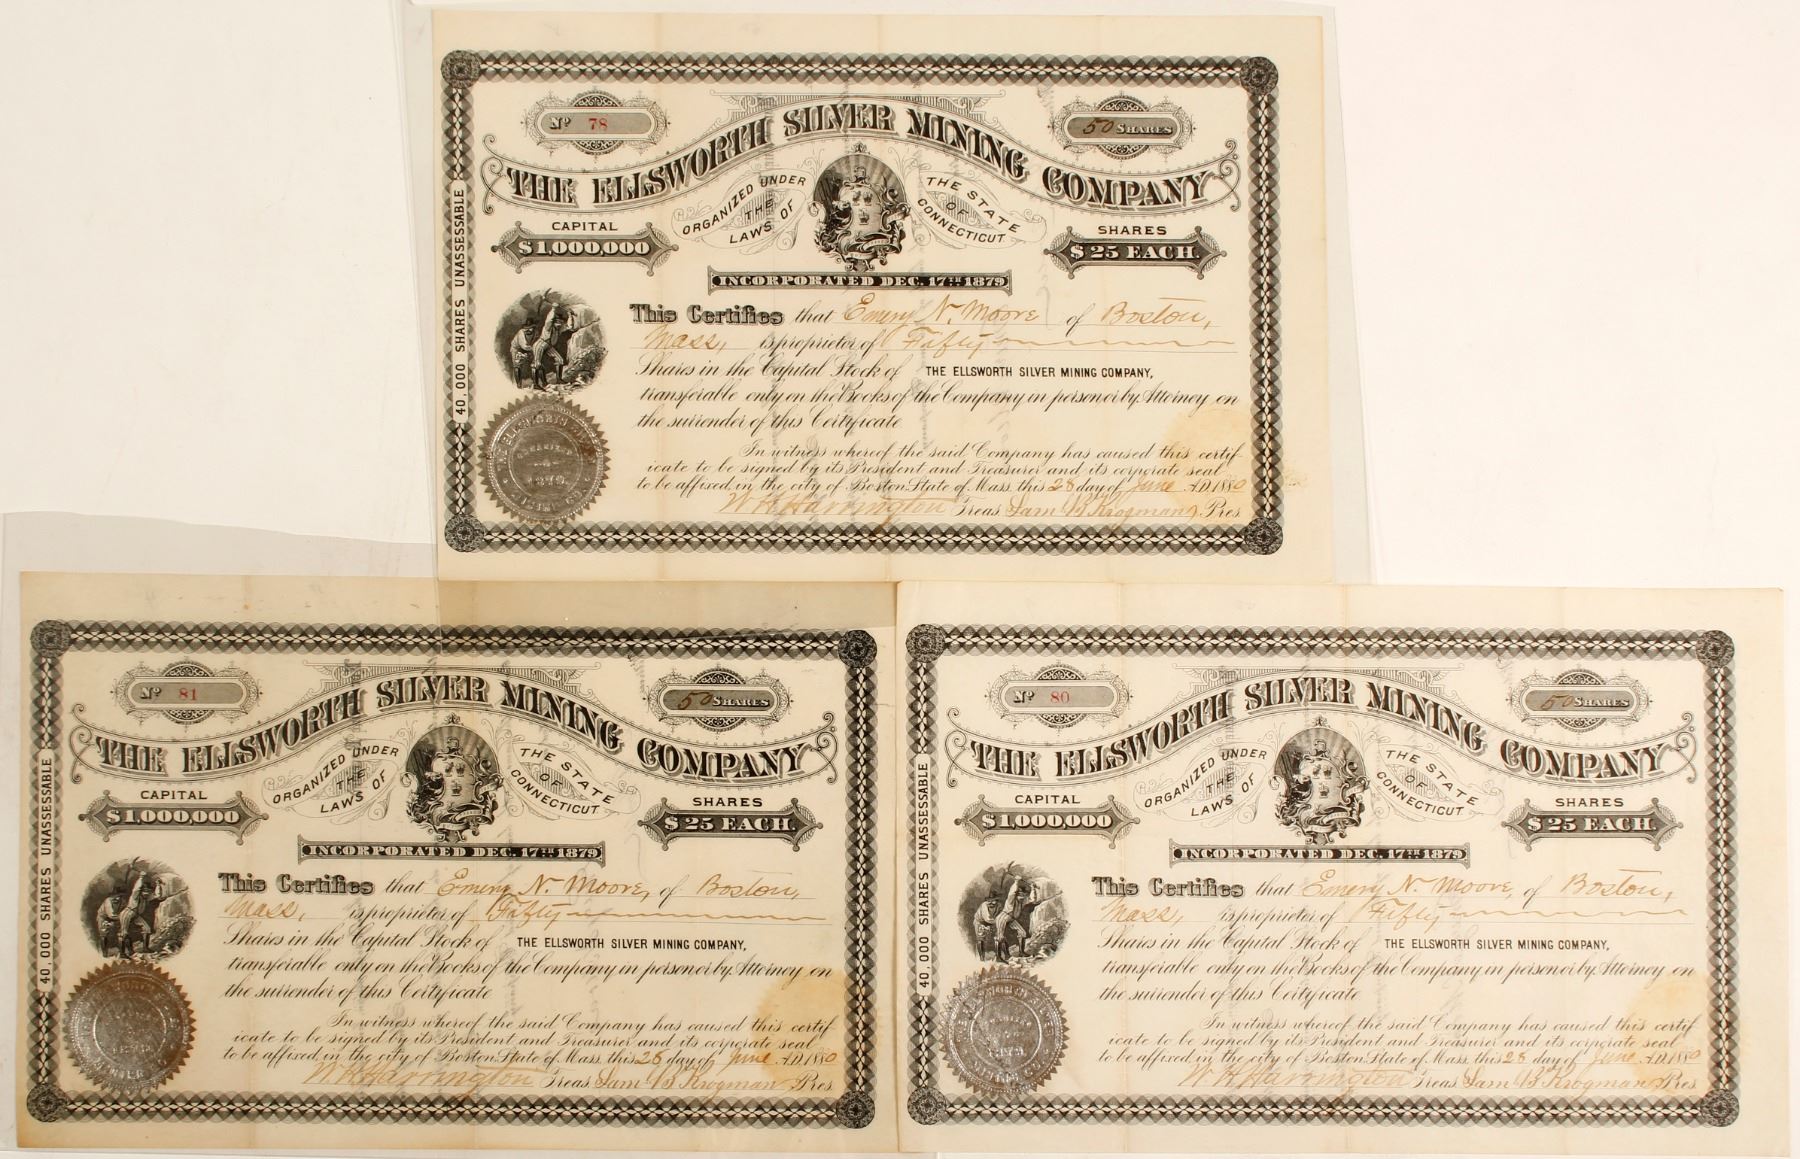 Nº 78
50 SHARES
THE ELLSWORTH SILVER MINING COMPANY
ORGANIZED UNDER THE LAWS OF
THE STATE OF CONNECTICUT
CAPITAL
$1,000,000
SHARES
$25 EACH.
INCORPORATED DEC. 17TH 1879
40,000 SHARES UNASSESSABLE
This Certifies that Emery N. Moore of Boston,
Mass, is proprietor of Fifty
Shares in the Capital Stock of THE ELLSWORTH SILVER MINING COMPANY,
transferable only on the Books of the Company in person or by Attorney on
the surrender of this Certificate
In witness whereof the said Company has caused this certif-
icate to be signed by its President and Treasurer and its corporate seal
to be affixed, in the city of Boston State of Mass. this 28 day of June A.D. 1880
W. H. Harrington Treas Sam B Krogman Pres.
Nº 81
50 SHARES
THE ELLSWORTH SILVER MINING COMPANY
ORGANIZED UNDER THE LAWS OF
THE STATE OF CONNECTICUT
CAPITAL
$1,000,000
SHARES
$25 EACH.
INCORPORATED DEC. 17TH 1879
40,000 SHARES UNASSESSABLE
This Certifies that Emery N. Moore, of Boston,
Mass, is proprietor of Fifty
Shares in the Capital Stock of THE ELLSWORTH SILVER MINING COMPANY,
transferable only on the Books of the Company in person or by Attorney on
the surrender of this Certificate
In witness whereof the said Company has caused this certif-
icate to be signed by its President and Treasurer and its corporate seal
to be affixed, in the city of Boston State of Mass. this 28 day of June A.D. 1880
W. H. Harrington Treas Sam B Krogman Pres
Nº 80
50 SHARES
THE ELLSWORTH SILVER MINING COMPANY
ORGANIZED UNDER THE LAWS OF
THE STATE OF CONNECTICUT
CAPITAL
$1,000,000
SHARES
$25 EACH.
INCORPORATED DEC. 17TH 1879
40,000 SHARES UNASSESSABLE
This Certifies that Emery N. Moore, of Boston,
Mass, is proprietor of Fifty
Shares in the Capital Stock of THE ELLSWORTH SILVER MINING COMPANY,
transferable only on the Books of the Company in person or by Attorney on
the surrender of this Certificate
In witness whereof the said Company has caused this certif-
icate to be signed by its President and Treasurer and its corporate seal
to be affixed, in the city of Boston State of Mass. this 28 day of June A.D. 1880
W. H. Harrington Treas Sam B Krogman Pres